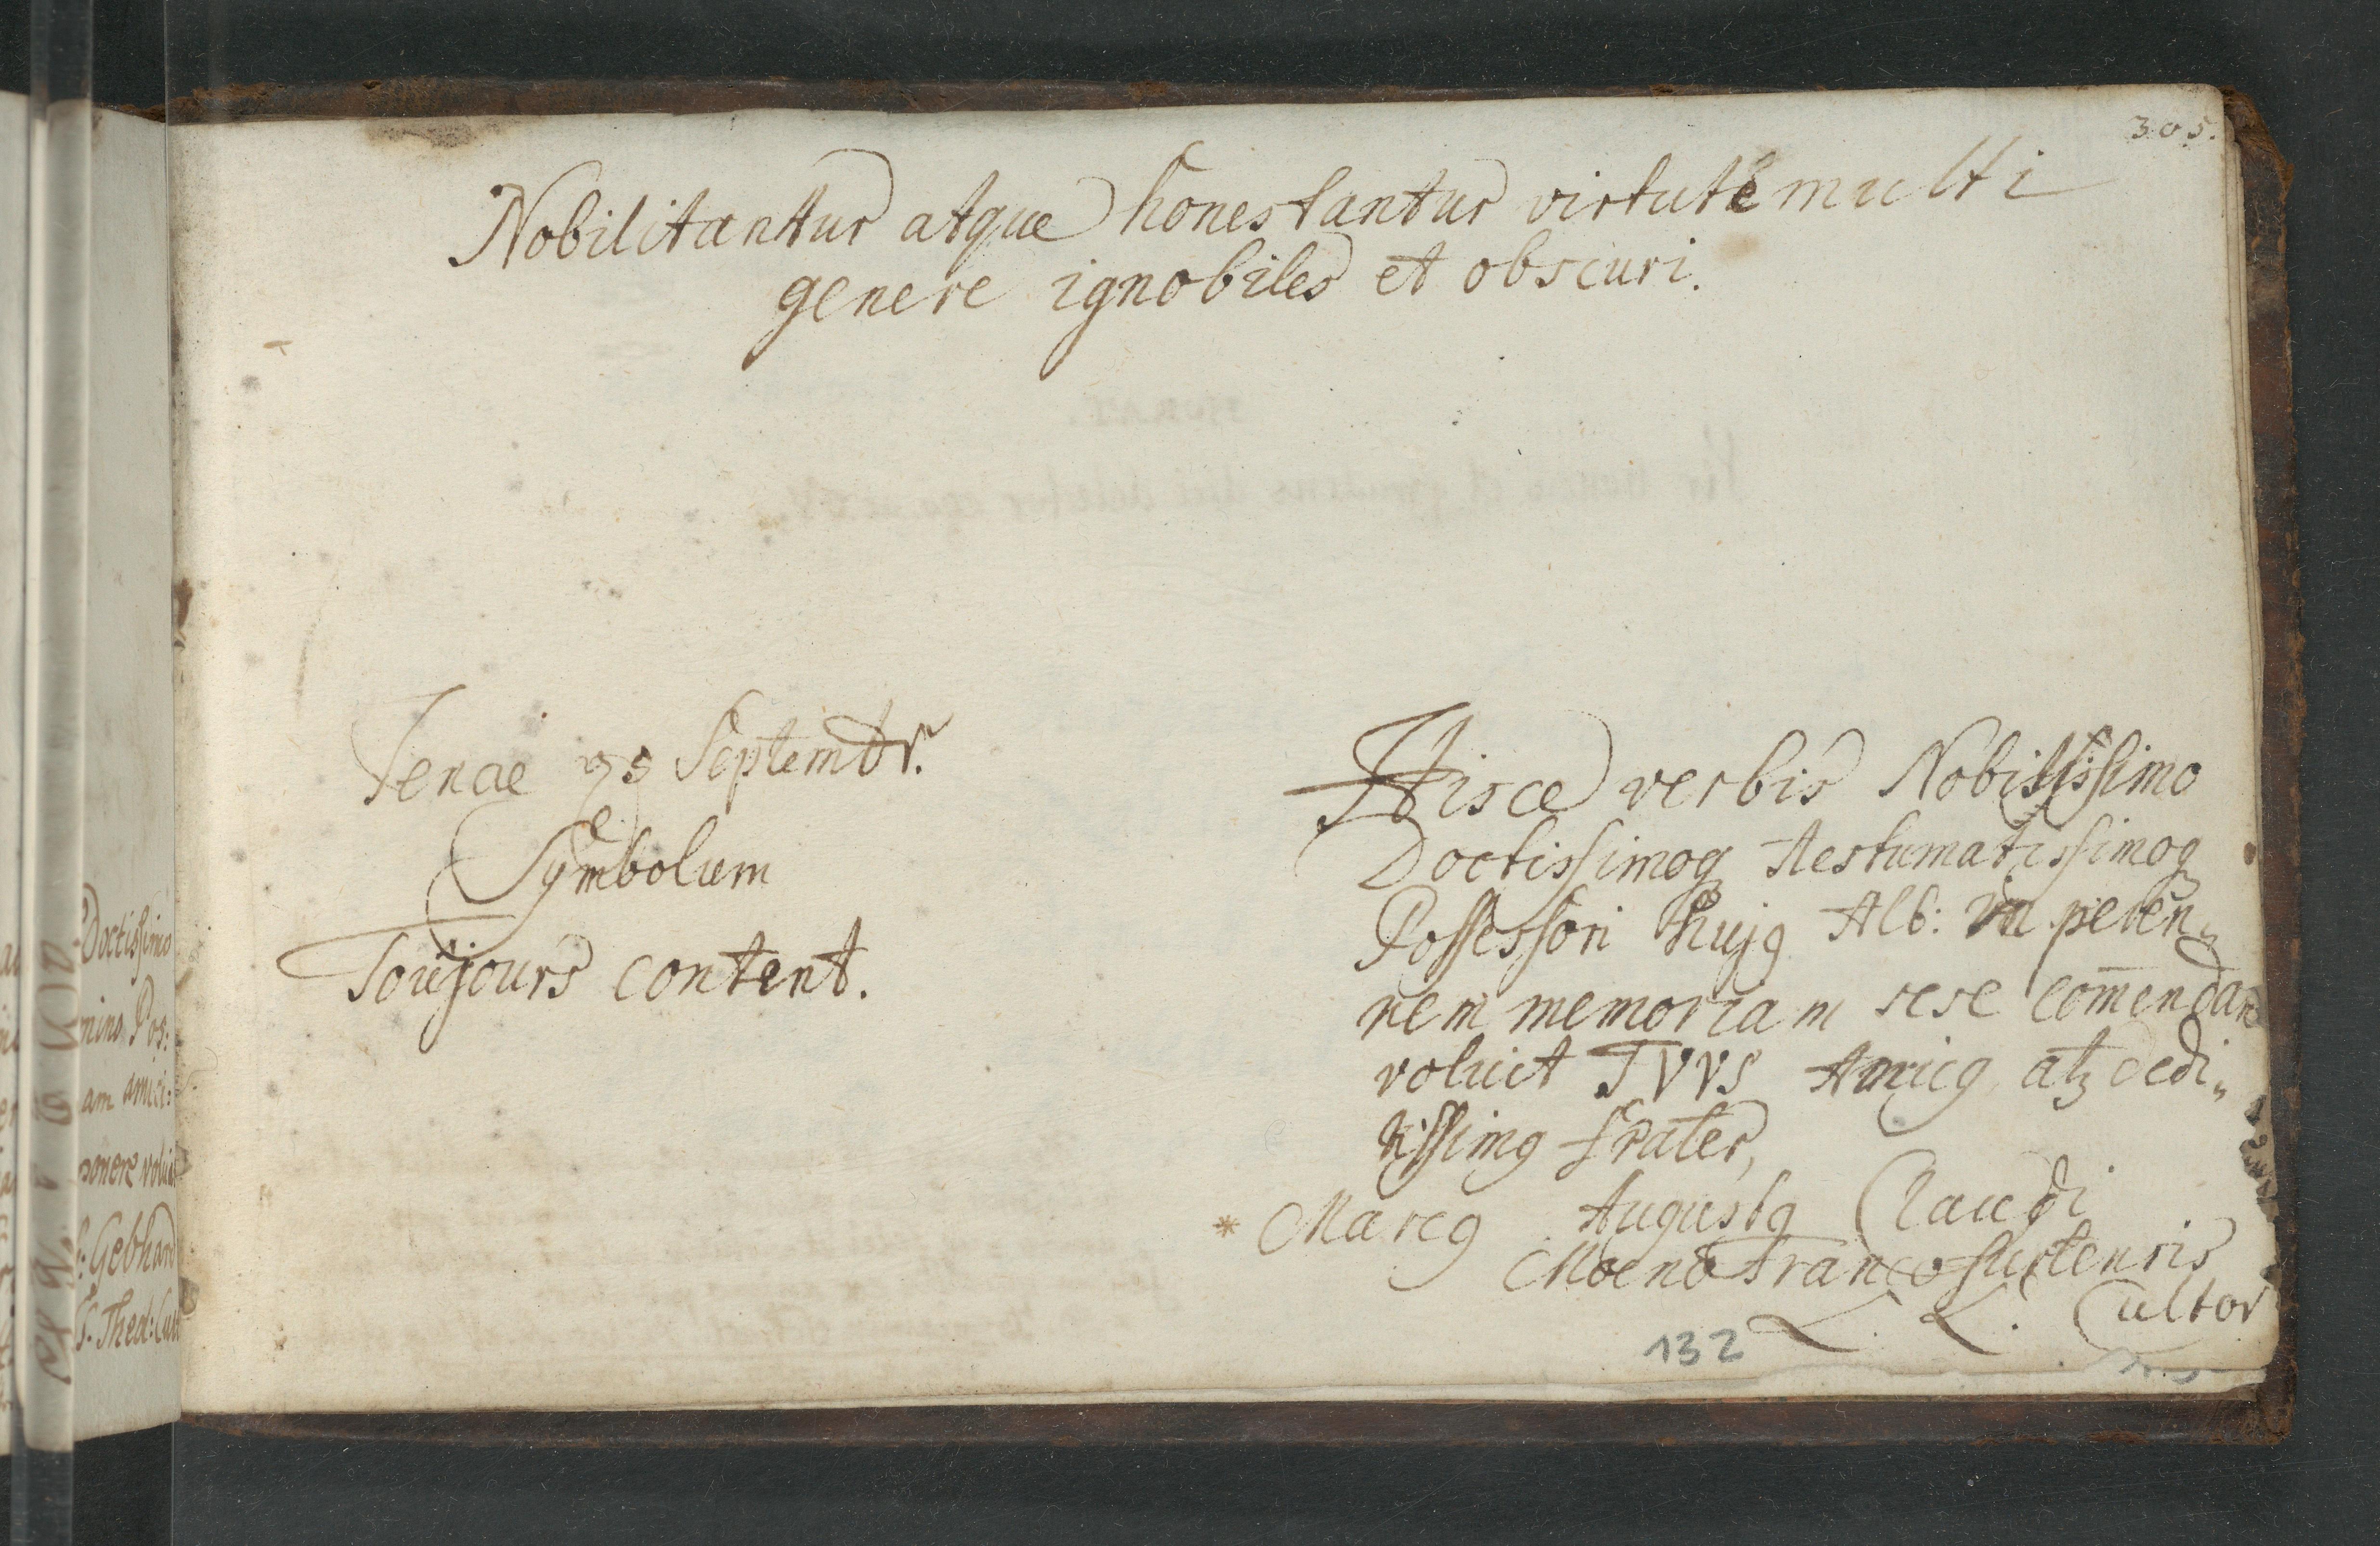 305.
Nobilitantur atque honestantur virtute multi
genere ignobiles et obscuri.
Jenae 25 Septembr.
Symbolum
Toujours content.
Hisce verbis Nobilissimo
Doctissimoq Aestumatissimoq
Possessori hujq Alb: in peren„
nem memoriam sese com̄endare
voluit TVVS Amicq atq dedi„
tissimq frater,
* Marcq Augustq Claudi
Moeno Francofurtensis
L. L. Cultor
132
Doctissimo
mino Pos:
am amici:
ponere voluit
Gebhard
Theol: Cult